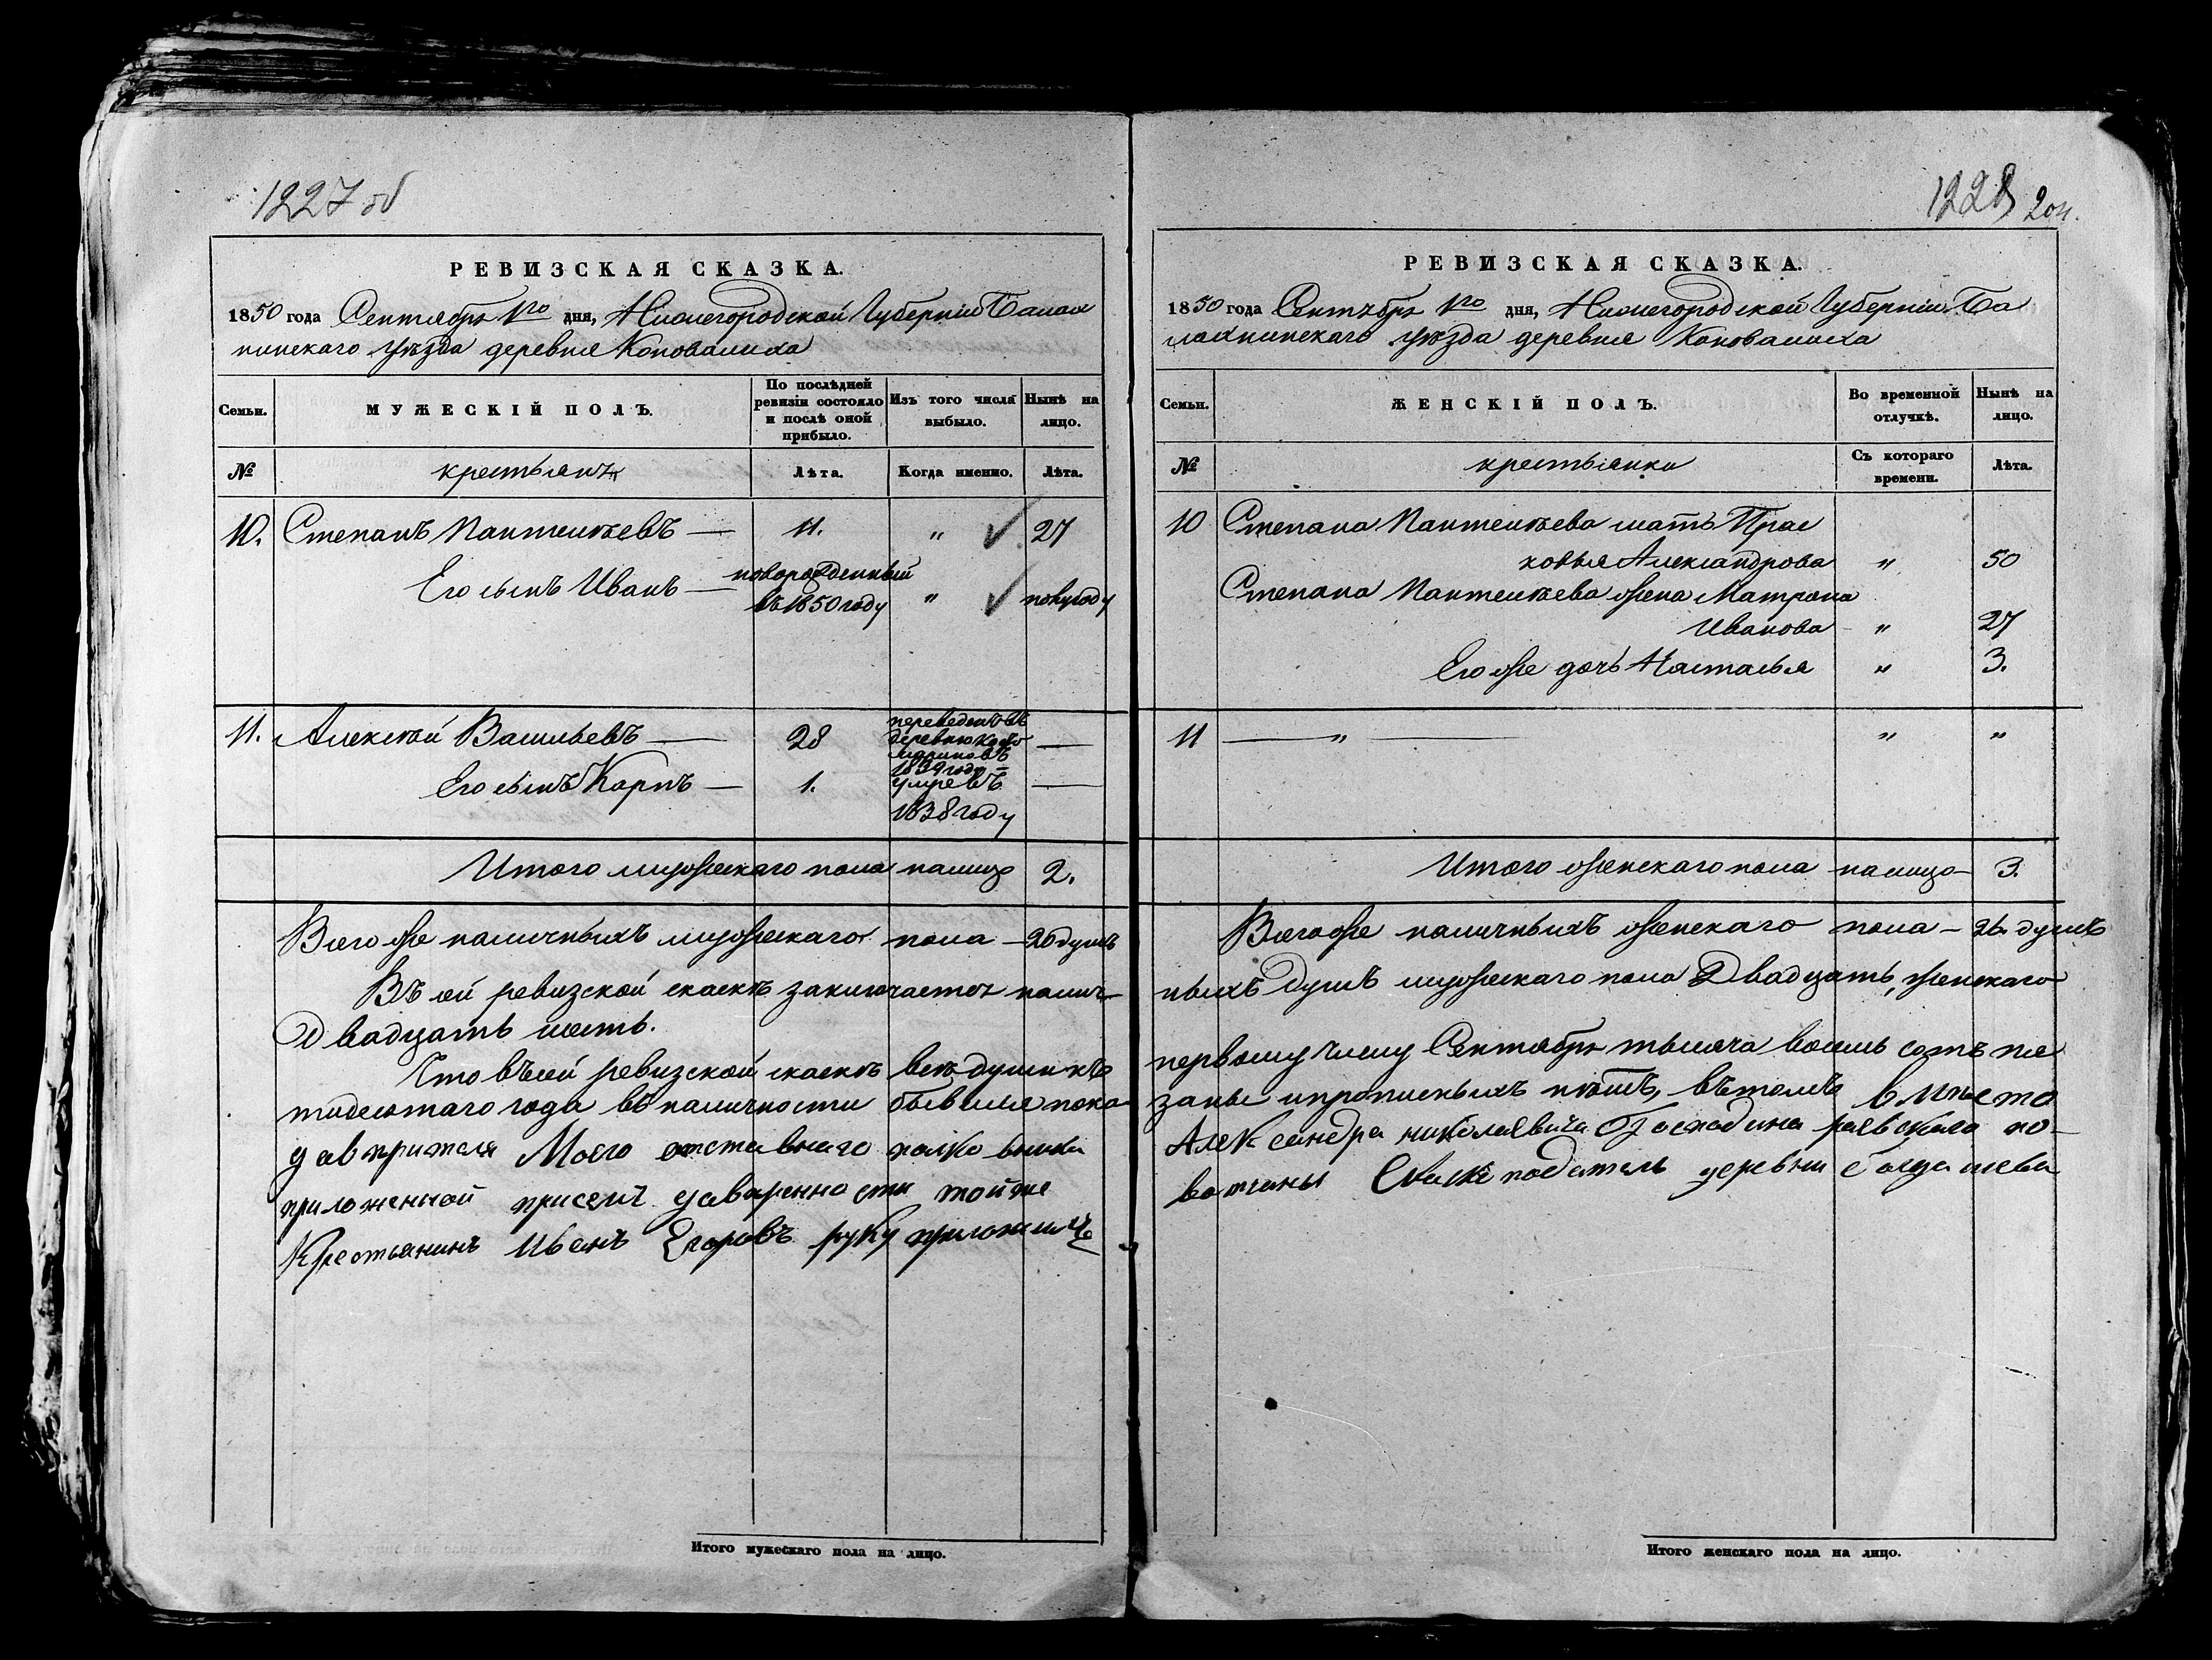 1227 об
РЕВИЗСКАЯ СКАЗКА.
1850 года Сентября 1го дня, Нижегородской Губерніи Балах
нинскаго уѣзда деревни Коновалиха
Семьи.
МУЖЕСКІЙ ПОЛЪ.
По послѣдней ревизіи состояло и послѣ оной прибыло.
Изъ того числа выбыло.
Нынѣ на лицо.
№
крестьянъ
Лѣта.
Когда именно.
Лѣта.
10. Степанъ Пантелѣевъ — 11. „ 27
Его сынъ Иванъ — новорожденный въ 1850 году „ полугоду
11. Алексѣй Васильевъ — 28 переведенъ въ деревню 1839 году —
Его сынъ Карпъ — 1. умре въ 1838 году —
Итого мужескаго пола налицо 2.
Всего же наличныхъ мужескаго пола — 20 душъ
Въ сей ревизской сказкѣ заключается налич-
двадцать шесть.
Что въ сей ревизской сказкѣ всѣ души къ
тидесятаго года въ наличности бывшія пока
Моего отставнаго полковника
приложенной присемъ той же
Крестьянинъ Иванъ Егоровъ руку приложилъ
Итого мужескаго пола на лицо.
1228
РЕВИЗСКАЯ СКАЗКА.
1850 года Сентября 1го дня, Нижегородской Губерніи Ба
лахнинскаго уѣзда деревни Коновалиха
Семьи.
ЖЕНСКІЙ ПОЛЪ.
Во временной отлучкѣ.
Нынѣ на лицо.
№
крестьянки
Съ котораго времени.
Лѣта.
10 Степана Пантелѣева мать Прас
ковья Александрова „ 50
Степана Пантелѣева жена Матрона
Иванова „ 27
Его же дочь Настасья „ 3.
11 — „ — „ „
Итого женскаго пола налицо — 3.
Всего же наличныхъ женскаго пола — 26 душъ
ныхъ душъ мужескаго пола двадцать, женскаго
первому числу Сентября тысяча восемь сотъ пя
заны и прописныхъ нѣтъ, въ томъ вместо
Александра николаевича Господина раевскаго по-
вотчины деревни
Итого женскаго пола на лицо.